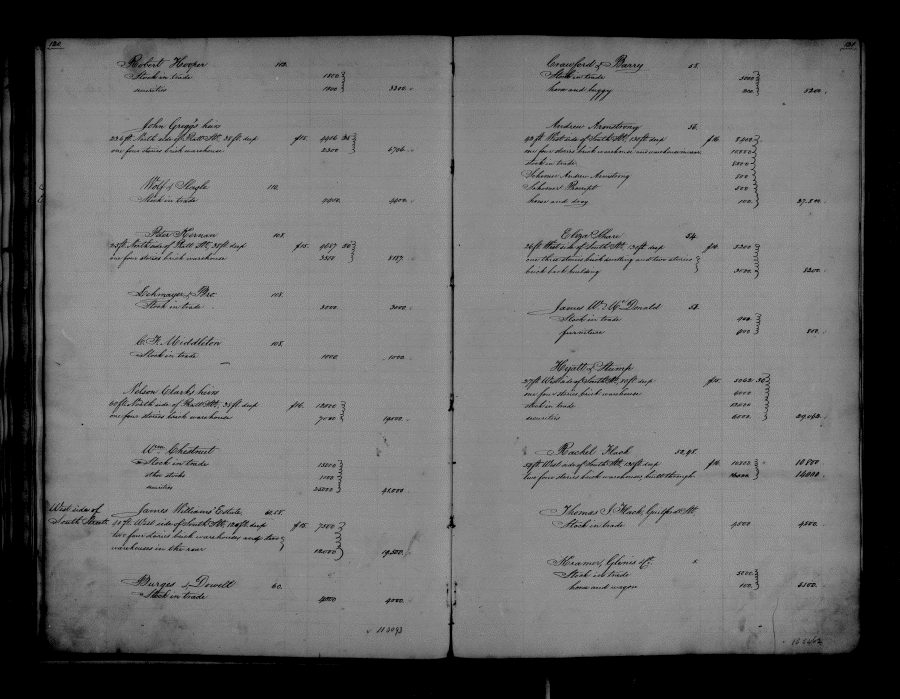 Robert Hooper 112.
Stock in trade 1800
securities 1500 3300.
John Gregg's heirs
23 6ft North side of Pratt St, 38ft deep $15. 4406 25
one four stories brick warehouse 2300 6706.
Wolf & Slagle 110.
Stock in trade 4400.
Peter Kernan 108.
25ft North side of Pratt St, 38ft deep $15. 4687 25
one four stories brick warehouse 3500 8187.
Lehmayer & Bro. 108.
Stock in trade 3000. 3000.
C. F. Middleton 108.
Stock in trade 1000 1000.
Nelson Clark's heirs
60ft North side of Pratt St, 38ft deep $16. 12000
one four stories brick warehouse 7000 19000.
Wm Chestnut
Stock in trade 15000
other stocks 1000
securities 25000 41,000
West side of South Street
James Williams' Estate 60.58.
40ft West side of South St, 120ft deep $18. 7500
two four stories brick warehouses and two
warehouses in the rear 12000 19,500.
Burges & Dowell 60.
Stock in trade 4000 4000.
121
Crawford & Barry 58.
Stock in trade 5000
horse and buggy 200 5200.
Andrew Armstrong 56.
West side of South St, 130ft deep $16.
one four stories brick warehouse and warehouse in rear
stock in trade 8000
Schooner Andrew Armstrong 500
Schooner Prompt 500
horse and dray 100 27,500.
Eliza Share 54.
26ft West side of South St, 130ft deep $16. 5200
one three stories brick dwelling and two stories
brick back building 3000 8200.
James W. McDonald 52.
Stock in trade 400
furniture 400 800.
Hyatt & Stump
27ft West side of South St, 50ft deep $15. 5062 50
one four stories brick warehouse 6000
stock in trade 12000
securities 6000 29,062.
Rachel Hack 50.48.
West side of South St, 130ft deep $16. 10800 10800
two four stories brick warehouses built through 14000 14000.
Thomas J. Hack, Guilford St.
Stock in trade 4500 4500.
Kramer, Glenis
Stock in trade 5000
horse and wagon 100 5100.